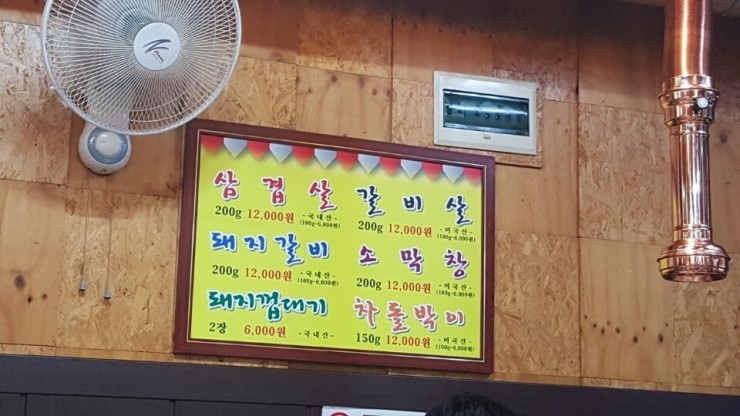 삼겹살
200g 12,000원 -국내산- (100g~6,000원)
갈비살
200g 12,000원 -미국산- (100g~6,000원)
돼지갈비
200g 12,000원 -국내산- (100g~6,000원)
소막창
200g 12,000원 -미국산- (100g~6,000원)
돼지껍대기
2장 6,000원 -국내산-
차돌박이
150g 12,000원 -미국산-